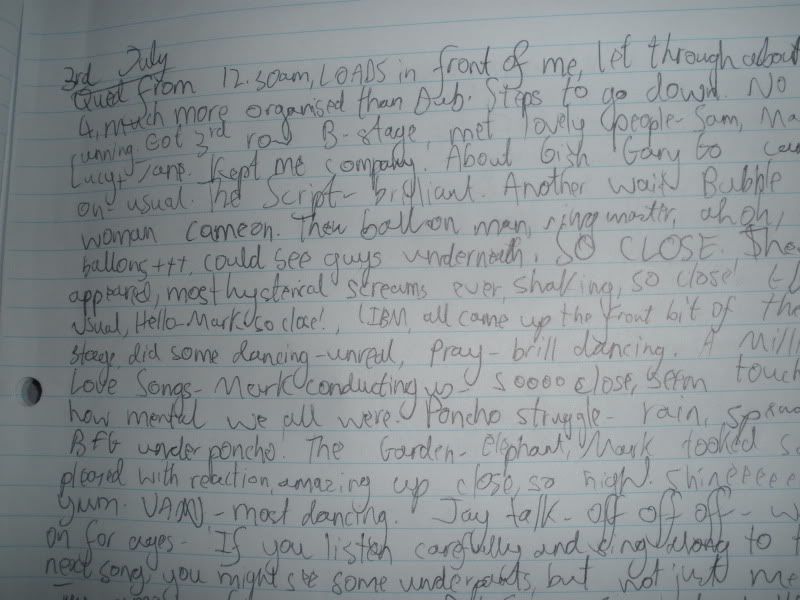 3rd July
Qued from 12.30am, LOADS in front of me, let through about
4, much more organised than Dub. Steps to go down. No
running. Got 3rd row B-stage, met lovely people - Sam, Ma
Lucy + Kept me company. About 6ish Gary Go
on - usual. The Script - brilliant. Another wait Bubble
woman came on. Then balloon man, ring master,
ballons +++, could see guys underneath. SO CLOSE. They
appeared, most hysterical screams ever, shaking, so close!
usual, Hello - Mark so close!, UBM, all came up the front bit of the
stage, did some dancing - unreal, Pray - brill dancing. A Milli
Love Songs - Mark conducting us - soooo close, touch
how mental we all were. Poncho struggle - rain,
BFG under poncho. The Garden - elephant, Mark looked so
pleased with reaction, amazing up close, so high. Shineeeee
yum. VAIN - most dancing. Jay talk - off off off - w
on for ages - 'If you listen carefully and sing along to t
next song you might see some underpants, but not just me